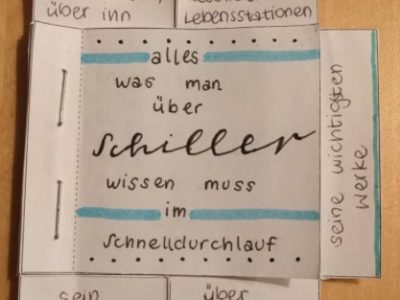 über inn
Lebensstationen
alles
was man
über
Schiller
wissen muss
im
Schnelldurchlauf
seine wichtigsten
Werke
sein
über